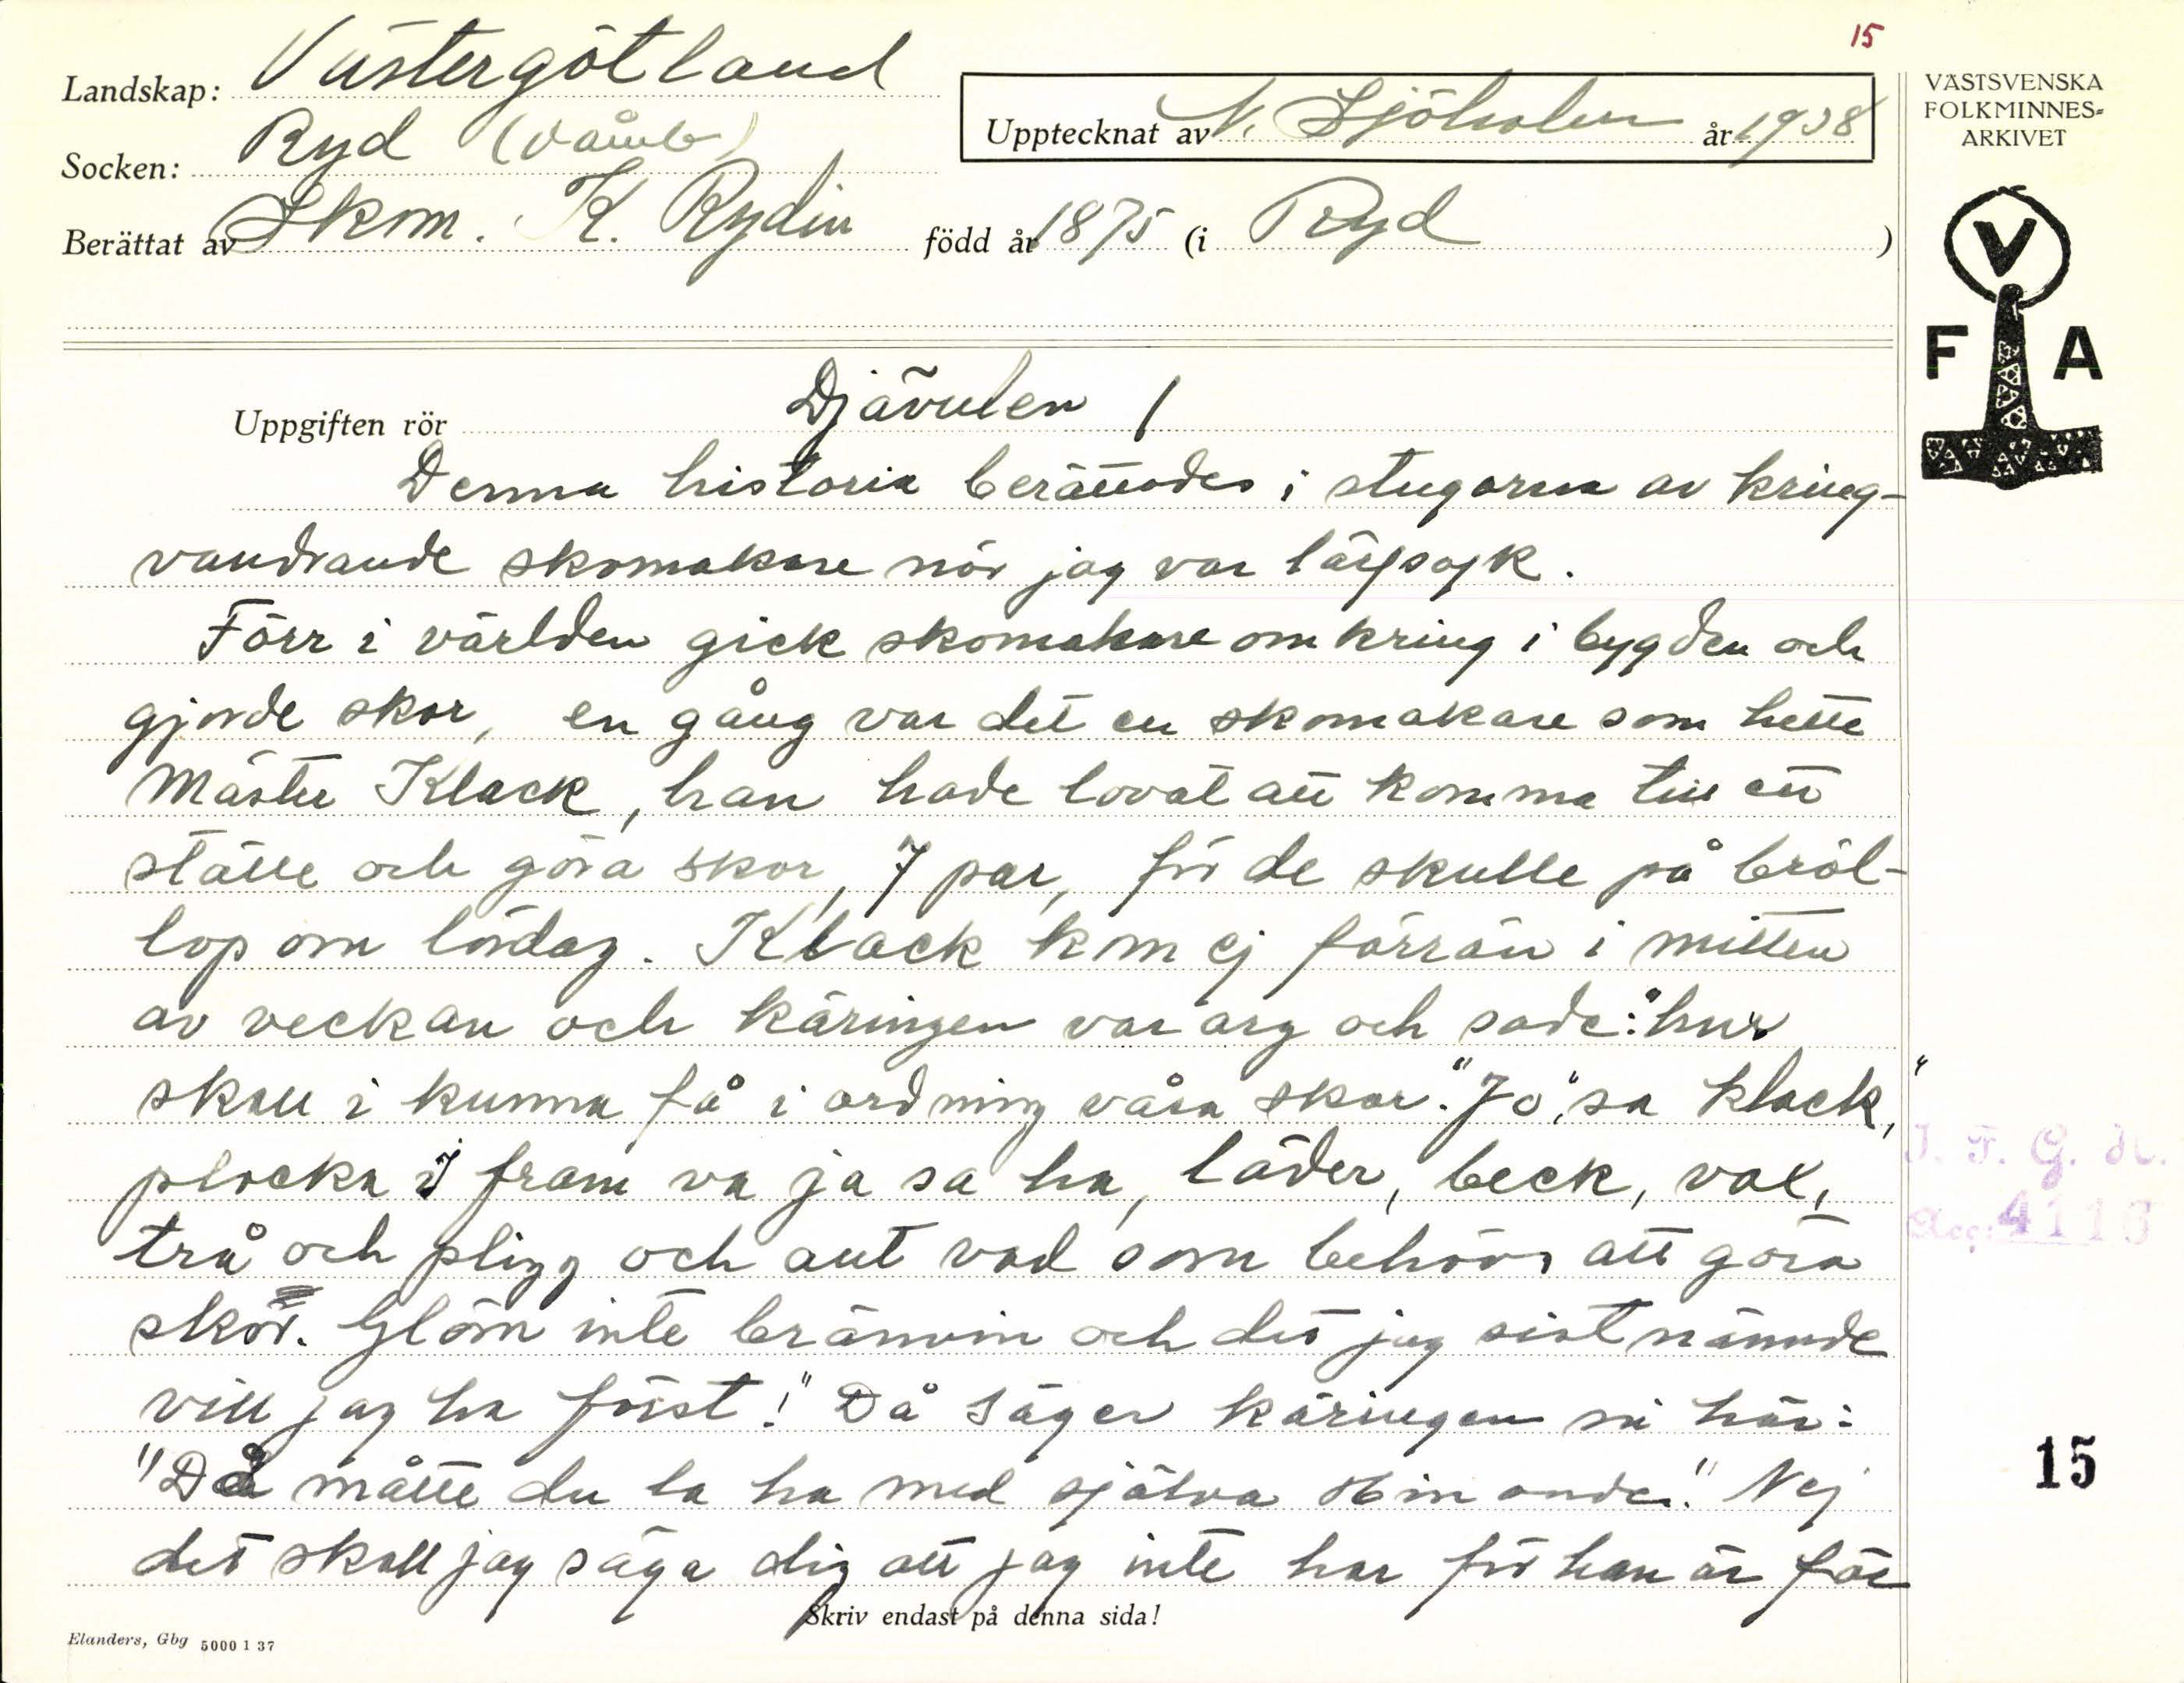 15
Landskap: Västergötland
Socken: Ryd (Våmb)
Upptecknat av N. Sjöholm år 1938
Berättat av Skom. K. Rydin född år 1875 (i Ryd )
VÄSTSVENSKA
FOLKMINNES=
ARKIVET
V
F A
Uppgiften rör Djävulen 1
Denna historia berättades i stugorna av kring-
vandrande skomakare när jag var lärpojk.
Förr i världen gick skomakare omkring i bygden och
gjorde skor, en gång var det en skomakare som hette
Mäster Klack, han hade lovat att komma till ett
ställe och göra skor, 7 par, för de skulle på bröl-
lop om lördag. Klack kom ej förrän i mitten
av veckan och käringen var arg och sade: "hur
skall i kunna få i ordning våra skor." "Jo", sa klack, "
plocka I fram va ja sa ha, läder, beck, vax,
trå och pligg och allt vad som behövs att göra
skor. Glöm inte brännvin och det jag sist nämnde
vill jag ha först!" Då säger käringen så här:
"Då måtte du la ha med själva Hin onde." Nej
det skall jag säga dig att jag inte har för han är för
J. F. G. H.
Acc: 4116
15
Skriv endast på denna sida!
Elanders, Gbg 5000 1 37